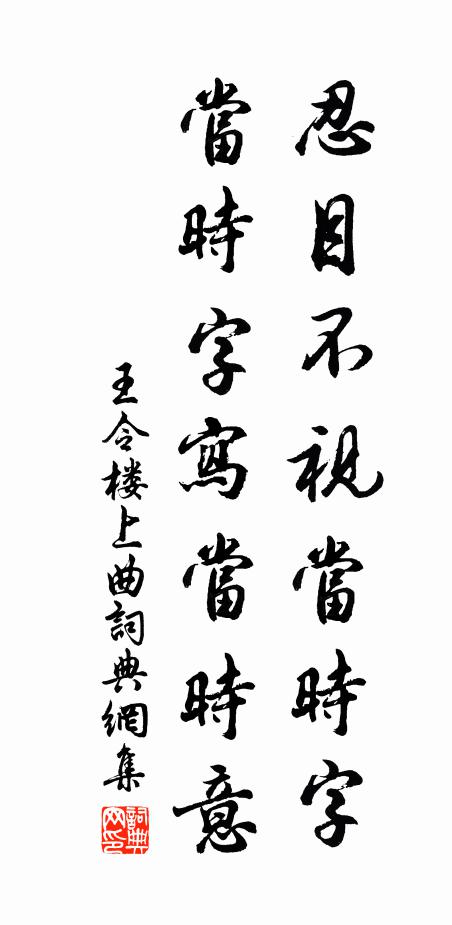 忍目不視當時字
當時字寫當時意
王令楼上曲詞典網集
詞典網印